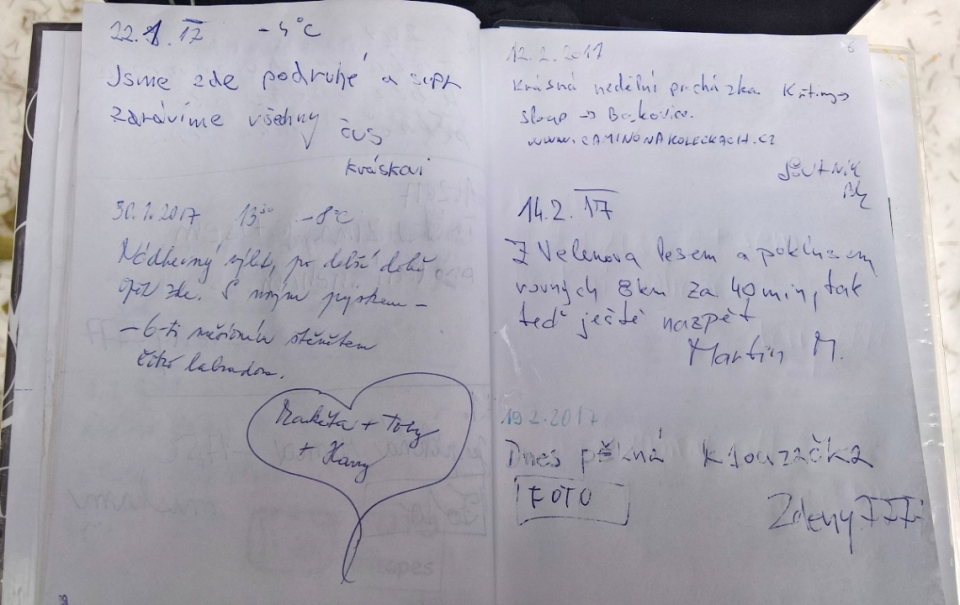 22. 1. 17 -4°C
Jsme zde podruhé a opět
zdravíme všechny
čus
Kráskovi
30.1.2017 13 30 -8°C
Nádherný výlet, po delší době
opět zde. S novým pejskem -
- 6-ti měsíčním štěnětem
labradora.
Markéta + Toby
+ Harry
12.2.2017
Krásná nedělní procházka.
sloup → Boskovice.
WWW.CAMINONAKOLECKACH.CZ
14.2. 17
Z Velenova lesem a poklusem
rovných 8km za 40 min, tak
teď ještě nazpět
Martin M.
19.2.2017
Dnes pěkná klouzačka
FOTO